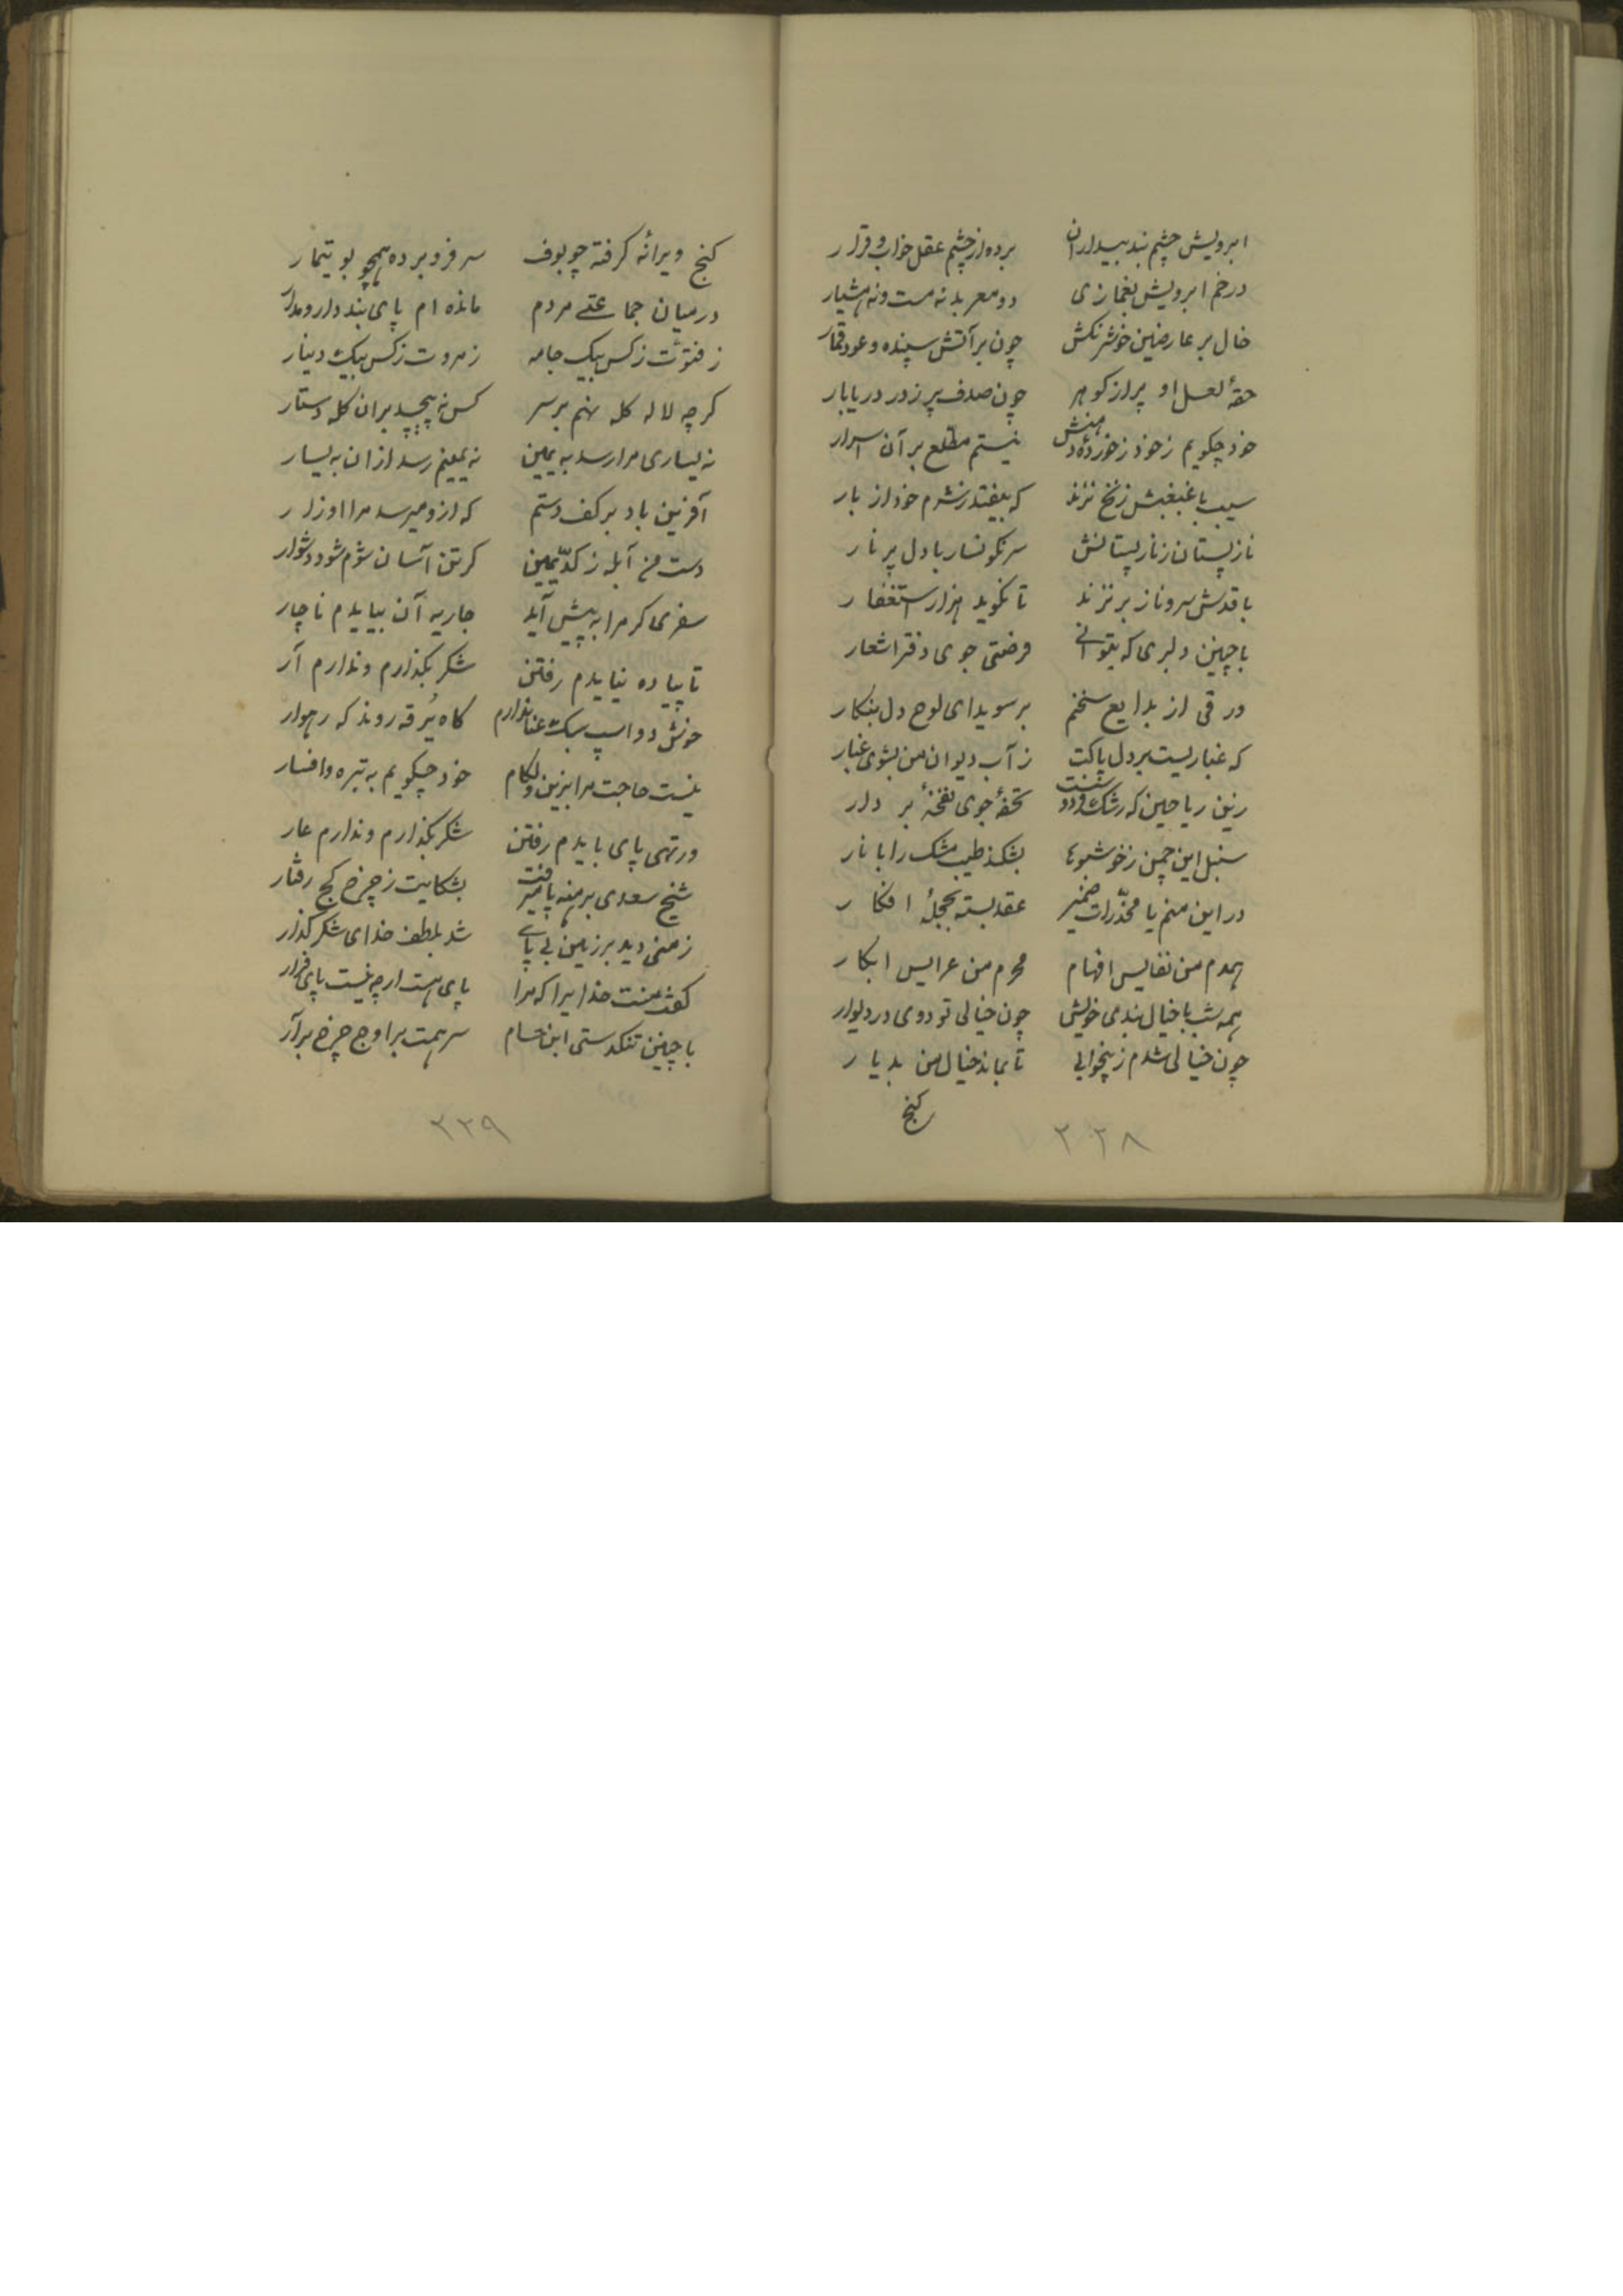 ابرویش چشم بند بیداران برده از چشم عقل خواب و قرار
در خم ابرویش بغمازی دو معربد نه مست و نه هشیار
خال بر عارضین خوش رنکش چون بر آتش سپنده و عود قمار
حقهٔ لعل او پر از کوهر چون صدف پر ز در دریابار
خود چکویم ز خود ز خوردهٔ دهنش نیستم مطلع بر آن اسرار
سیب با غبغبش زنخ نزند که بیفتد ز شرم خود از بار
نار پستان ز نار پستانش سرنکونسار با دل پر نار
با قدش سرو ناز بر نزند تا نکوید هزار استغفار
با چنین دلبری که بتوانی فرصتی جوی دفتر اشعار
ورقی از بدایع سخنم بر سویدای لوح دل بنکار
که غباریست بر دل پاکت ز آب دیوان من بشوی غبار
زین ریاحین که رشک فردوست تحفهٔ جوی نفخهٔ بر دار
سنبل این چمن ز خوشبوها بشکند طیب مشک را بازار
در این منم با مخدرات ضمیر عقد بسته بحجلهٔ افکار
همدم من نفایس افهام محرم من عرایس ابکار
همه شب با خیال بندی خویش چون خیالی تو دوی در دیوار
چون خیالی شدم ز بیخوابی تا بماند خیال من بدیار
کنج
۲۲۸
کنج ویرانه کرفته چو بوف سر فرو برده همچو بوتیمار
در میان جماعتی مردم مانده ام پای بند دار و مدار
ز فتوت ز کس بیک جامه ز مروت ز کس بیک دینار
کرچه لاله کله نهم بر سر کس نه پیچد بر ان کله دستار
نه یساری مرا رسد به یمین نه یمینم رسد از ان به یسار
آفرین باد بر کف دستم که از و میرسد مرا اوزار
دست من آبله ز کد یمین کر تن آسان شوم شود دشوار
سفری کر مرا به پیش آید جاریه آن بیایدم ناچار
تا پیاده نیایدم رفتن شکر بکذارم و ندارم آر
خوش دو اسپ سبک عنان دارم کاه یرقه روند که رهوار
نیست حاجت مرا بزین و لکام خود چکویم به تبره و افسار
ور تهی پای بایدم رفتن شکر بکذارم و ندارم عار
شیخ سعدی برهنه پا میرفت بشکایت ز چرخ کج رفتار
زمنی دید بر زمین بی پای شد بلطف خدای شکر کذار
کفت منت خدایرا که مرا پای هست ارچه نیست پای افزار
با چنین تنکدستی ابن حسام سر همت بر اوج چرخ برآر
۲۲۹